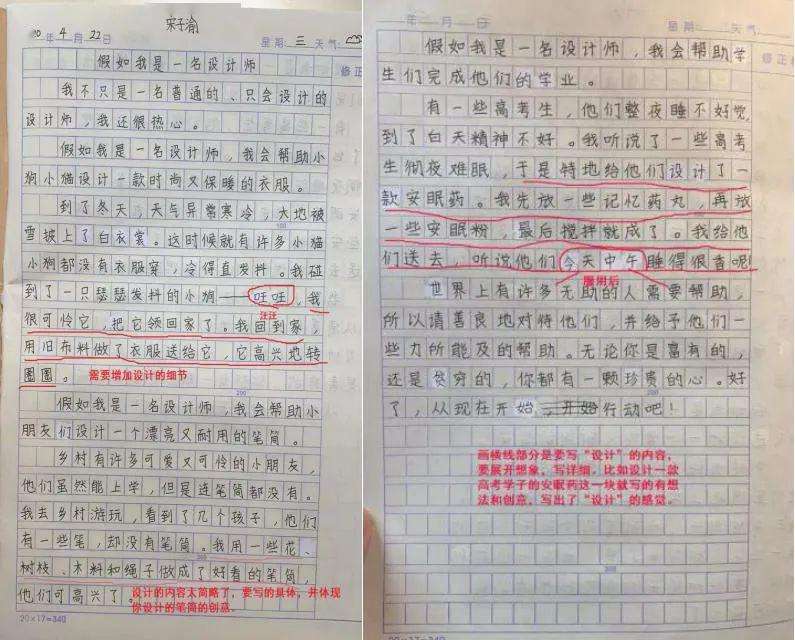 宋子渝
20年4月22日 星期三 天气
假如我是一名设计师
修正
我不只是一名普通的、只会设计的
设计师，我还很热心。
假如我是一名设计师，我会帮助小
狗小猫设计一款时尚又保暖的衣服。
到了冬天，天气异常寒冷，大地被
雪披上了白衣裳。这时候就有许多小猫
小狗都没有衣服穿，冷得直发抖。我碰
到了一只瑟瑟发抖的小狗——吐吐，我
汪汪
很可怜它，把它领回家了。我回到家，
用旧布料做了衣服送给它，它高兴地转
圈圈。
需要增加设计的细节
假如我是一名设计师，我会帮助小
朋友们设计一个漂亮又耐用的笔筒。
乡村有许多可爱又可怜的小朋友，
他们虽然能上学，但是连笔筒都没有。
我去乡村游玩，看到了几个孩子，他们
有一些笔，却没有笔筒。我用一些花、
树枝、木料和绳子做成了好看的笔筒，
他们可高兴了。
设计的内容太简略了，要写的具体，并体现
你设计的笔筒的创意。
20×17=340
年 月 日 星期 天气
假如我是一名设计师，我会帮助学
生们完成他们的学业。
有一些高考生，他们整夜睡不好觉，
到了白天精神不好。我听说了一些高考
生彻夜难眠，于是特地给他们设计了一
款安眠药。我先放一些记忆药丸，再放
一些安眠粉，最后搅拌就成了。我给他
们送去，听说他们今天中午睡得很香呢！
服用后
世界上有许多无助的人需要帮助，
所以请善良地对待他们，并给予他们一
些力所能及的帮助。无论你是富有的，
还是贫穷的，你都有一颗珍贵的心。好
了，从现在开始，开始行动吧！
画横线部分是要写“设计”的内容，
要展开想象，写详细。比如设计一款
高考学子的安眠药这一块就写的有想
法和创意，写出了“设计”的感觉。
20×17=340